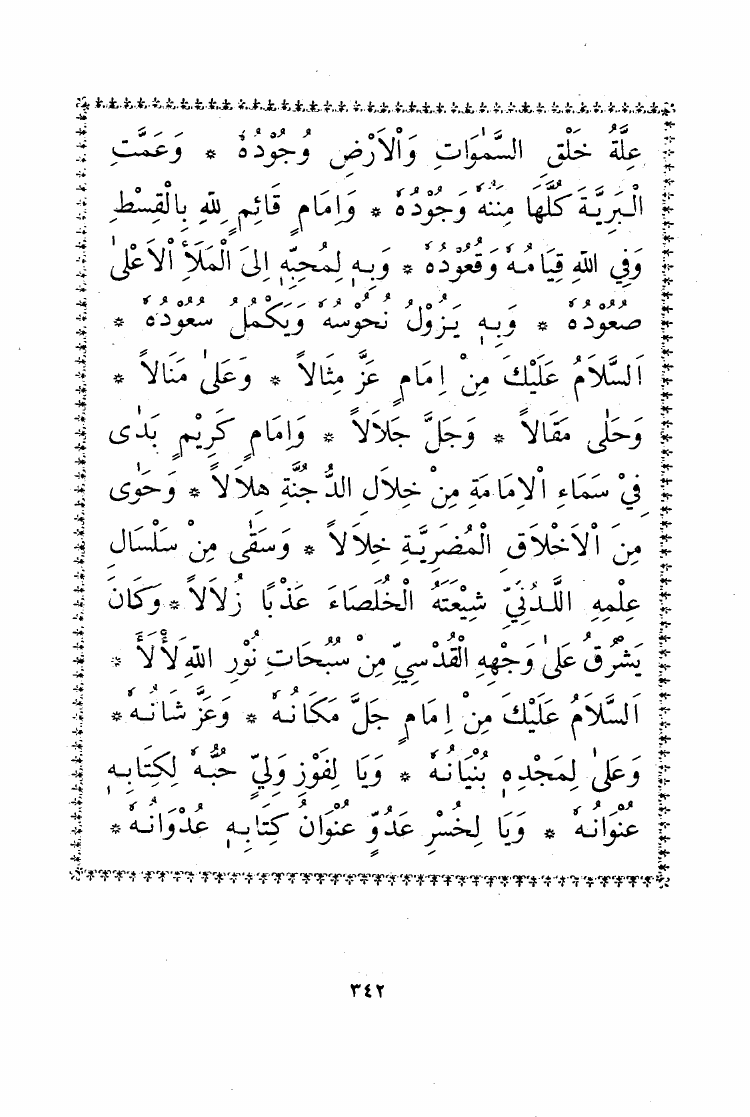 عِلَّةُ خَلْقِ السَّمٰوَاتِ وَاْلاَرْضِ وُجُوْدُهٗ * وَعَمَّتِ
الْبَرِيَّةَ كُلَّهَا مِنَنُهٗ وَجُوْدُهٗ * وَاِمَامٍ قَائِمٍ لِلّٰهِ بِالْقِسْطِ
وَفِي اللهِ قِيَامُهٗ وَقُعُوْدُهٗ * وَبِهٖ لِمُحِبِّهٖ اِلىَ الْمَلَأِ اْلاَعْلىٰ
صُعُوْدُهٗ * وَبِهٖ يَزُوْلُ نُحُوْسُهٗ وَيَكْمُلُ سُعُوْدُهٗ *
اَلسَّلاَمُ عَلَيْكَ مِنْ اِمَامٍ عَزَّ مِثَالاً * وَعَلىٰ مَنَالاً *
وَحَلٰى مَقَالاً * وَجَلَّ جَلاَلاً * وَاِمَامٍ كَرِيْمٍ بَدٰى
فِيْ سَمَاءِ اْلاِمَامَةِ مِنْ خِلاَلِ الدُّجُنَّةِ هِلاَلاً * وَحَوٰى
مِنَ اْلاَخْلاَقِ الْمُضَرِيَّةِ خِلاَلاً * وَسَقٰى مِنْ سَلْسَالِ
عِلْمِهِ اللَّدُنِيِّ شِيْعَتَهُ الْخُلَصَاءَ عَذْبًا زُلاَلاً * وَكَانَ
يَشْرُقُ عَلىٰ وَجْهِهِ الْقُدْسِيِّ مِنْ سُبُحَاتِ نُوْرِ اللهِ لَأْلَأَ *
اَلسَّلاَمُ عَلَيْكَ مِنْ اِمَامٍ جَلَّ مَكَانُهٗ * وَعَزَّ شَانُهٗ *
وَعَلىٰ لِمَجْدِهٖ بُنْيَانُهٗ * وَيَا لِفَوْزِ وَلِيٍّ حُبُّهٗ لِكِتَابِهٖ
عُنْوَانُهٗ * وَيَا لِخُسْرِ عَدُوٍّ عُنْوَانُ كِتَابِهٖ عُدْوَانُهٗ *
٣٤٢